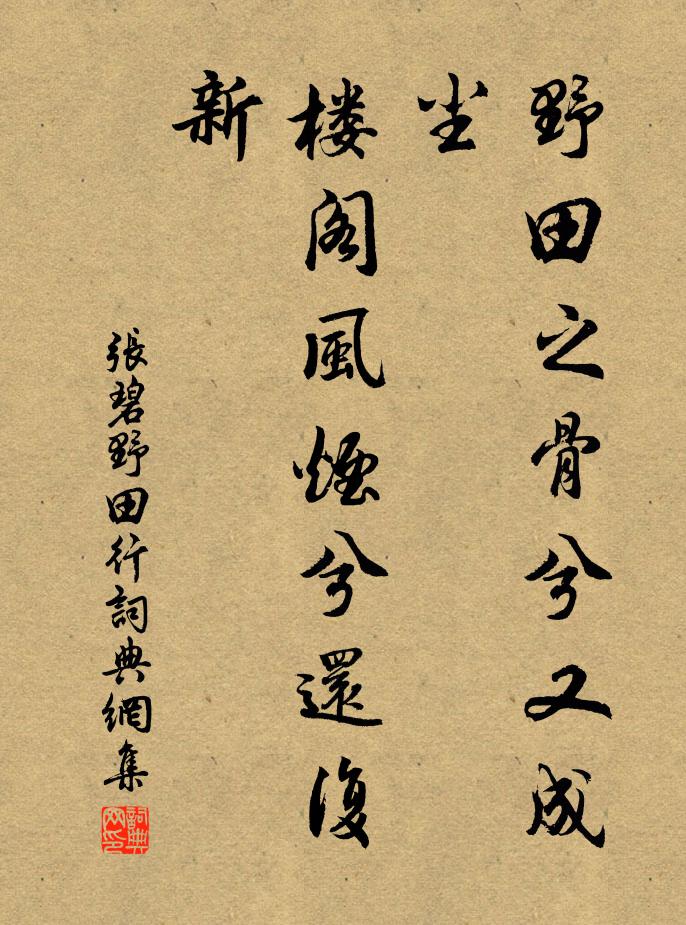 野田之骨兮又成
尘
楼阁風煙兮還復
新
張碧野田行詞典網集
詞典
网印